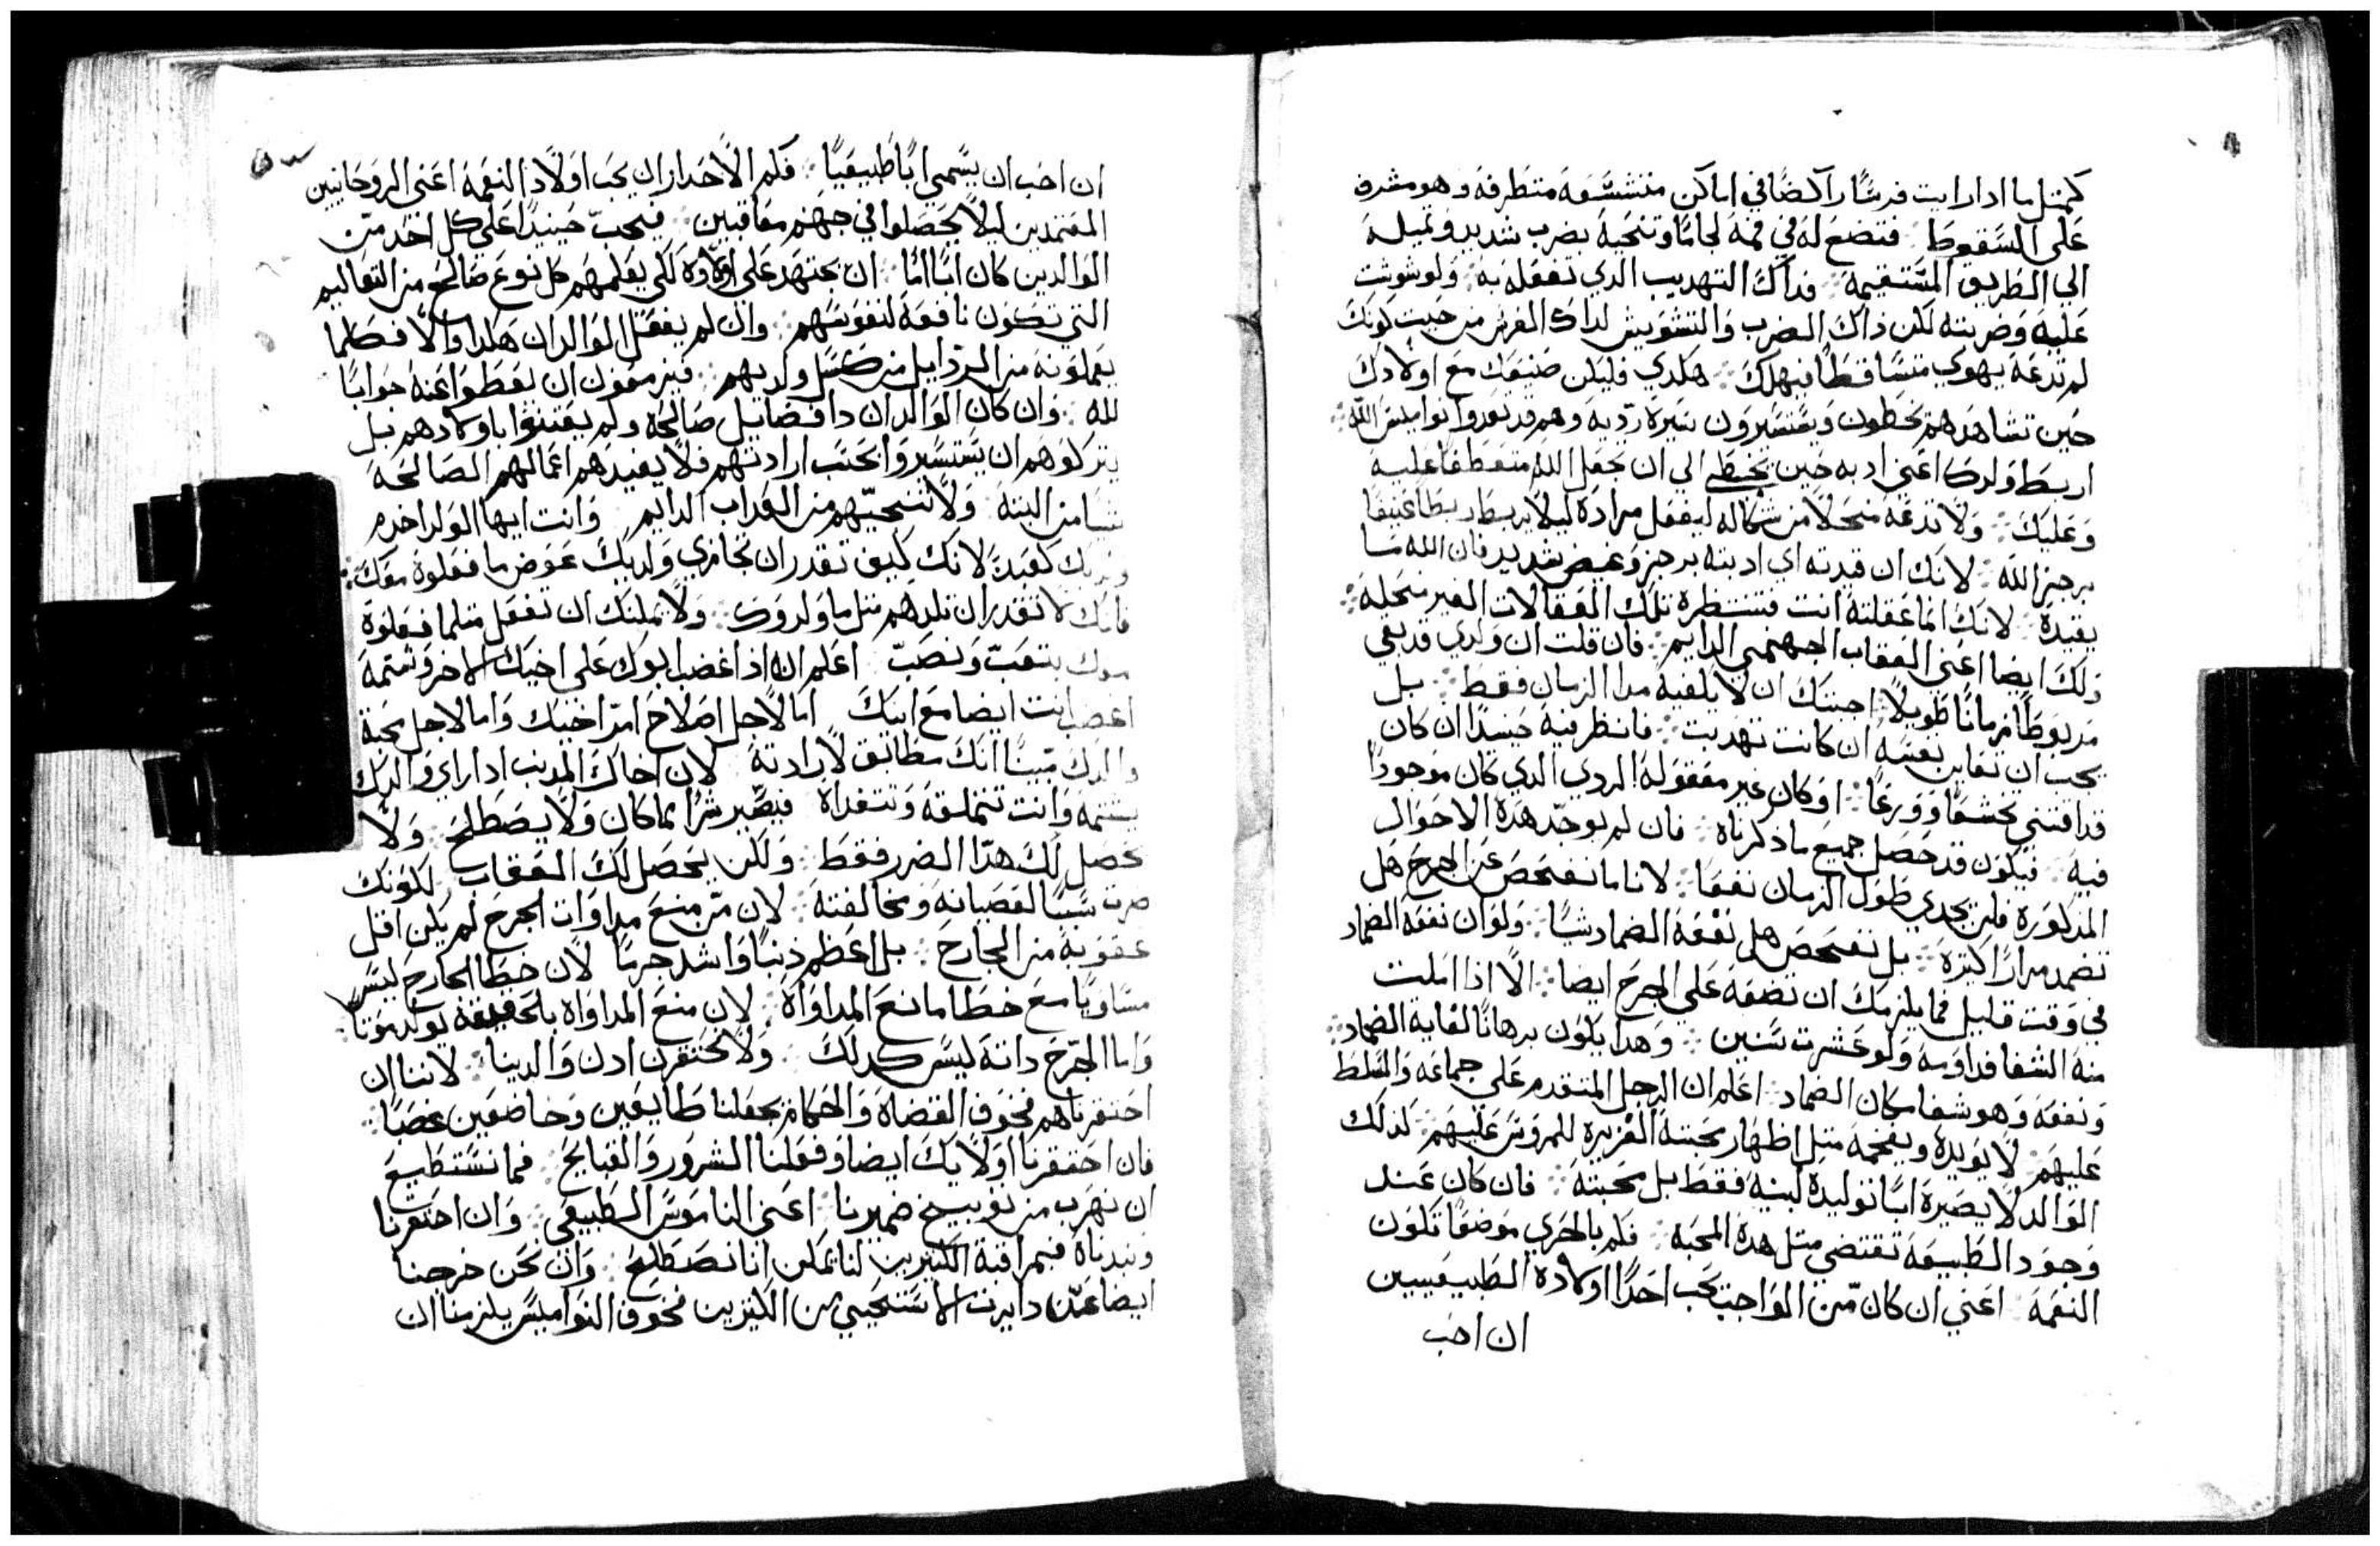 كمثل ما ادا رايت فرسًا راكضًا في اماكن متشسعة متطرفة وهو مشرف
على السقوط فتضع له في فمه لجامًا وتنحيه بضرب شديد وتميله
الي الطريق المستقيمة فداك التهديب الدي تفعله به ولو شوشت
عليه وضربته لكن ذاك الضرب والتشويش لداك الفرس من حيت كونك
لم تدعه يهوي متساقطًا فيهلك هكدي فليكن صنيعك مع اولادك
حين تشاهدهم يخطون ويستسيرون سيرة رديه وهم قد تعدوا نواميس الله
اربط ولدك اعني ادبه حين يخطي الى ان تجعل الله متعطفًا عليه
وعليك ولا تدعه منحلًا من شكاله ليفعل مراده ليلا يربط ربطًا عنيفًا
برجز الله لانك ان قيدته اي ادبته برجز وغيض شديد فان الله ما
يقيده لانك انما عقلته انت فتنتظره تلك العقالات الغير منحلة
ذلك ايضا اعني العقاب الجهنمي الدايم فان قلت ان ولدي قد بقي
مربوطًا زمانًا طويلًا اجبتك ان لا يكفيه مدا الزمان فقط بل
يجب ان تعاين نفسه ان كانت تهدبت فانظر فيه حينيدًا ان كان
قد اقتني تخشعًا وورعًا او كان غير مفعوله الردي الدي كان موجودًا
فيه فيكون قد حصل جميع ما ذكرناه فان لم توجد هده الاحوال
المدكورة فلن يجدي طول الزمان نفعًا لانا ما نفحص عن الجرح هل
تضمد مرارًا كتيرة بل نفحص هل نفعه الضماد شيًا ولو ان نفعه الضماد
في وقت قليل فما يلزمك ان تضعه على الجرح ايضا الا اذا املت
منه الشفا فداومه ولو عشرت سنين وهدا يكون برهانًا لغاية الضماد
ونفعه وهو شفا مكان الضماد اعلم ان الرجل المتقدم على جماعه والمتسلط
عليهم لا يويده ويفخمه متل اظهار محبته الغزيره للمروس عليهم لدلك
الوالد لا يصيره ابًا توليده لبنيه فقط بل محبته فان كان عند
وجود الطبيعة تقتضي متل هده المحبه فكم بالحري موضعًا تكون
النعمة اعني ان كان من الواجب يحب احدًا اولاده الطبيعيين
ان احب
ان احب ان يسمي ابًا طبيعيًا فكم الاحدار ان يحب اولاد النعمة اعني الروحانيين
المعتمدين ليلا يحصلوا في جهنم معاقبين فيجب حينيدًا على كل احد من
الوالدين كان ابًا امًا ان يجتهد على اولاده لكي يعلمهم كل نوع صالح من التعاليم
التي تكون نافعة لنفوسهم وان لم يفعل الوالدان هكدا والا فكلما
يعملونه من الردايل من كسل ولديهم فيزمعون ان يعطوا عنه جوابًا
لله وان كان الوالدان دا فضايل صالحه ولم يعتنوا باولادهم بل
يتركوهم ان يستسيروا بحسب ارادتهم فلا يفيدهم اعمالهم الصالحة
شيا من البتة ولا تنجيهم من العداب الدايم وانت ايها الولد اخدم
كعبد لانك كيف تقدر ان تجازي ولديك عوض ما فعلوه معك
فانك لا تقدر ان تلدهم متل ما ولدوك ولا يمكنك ان تفعل متلما فعلوه
بتعب ونصب اعلم انه اذا غضب ابوك على اخيك الاخر وشتمه
اغضب انت ايضا مع ابيك اما لاجل اصلاح امر اخيك واما لاجل محبة
والدك مبينًا انك مطابق لارادته لان اخاك المدنب ادا راي والديك
يشتمه وانت تتملقه وتتغداه فيصير شرًا مما كان ولا يصطلح ولا
يحصل لك هدا الضرر فقط ولكن يحصل لك العقاب لكونك
صرت سببًا لعصيانه ومخالفته لان من منع مداوات الجرح لم يكن اقل
عقوبة من الجارح بل اعظم ذنبًا واشد جرمًا لان خطا الجارح ليس
مساويًا مع خطا مانع المداواة لان منع المداواة بالحقيقة يولد موتًا
واما الجرح داته ليس كدلك ولا تحتقرن ادن والدينا لاننا ان
احتقرناهم فخوف القضاة والحكام تجعلنا طايعين وخاضعين غصبًا
فان احتقرنا اولايك ايضا وفعلنا الشرور والقبايح فما نستطيع
ان نهرب من توبيخ ضميرنا اعني الناموس الطبيعي وان احتقرنا
ونبدناه فبمراقبة الكتيرين لنا يمكن اننا نصطلح وان نحن خرجنا
ايضا عن دايرت الاستحيي من الكتيرين فخوف النواميس يلزمنا ان